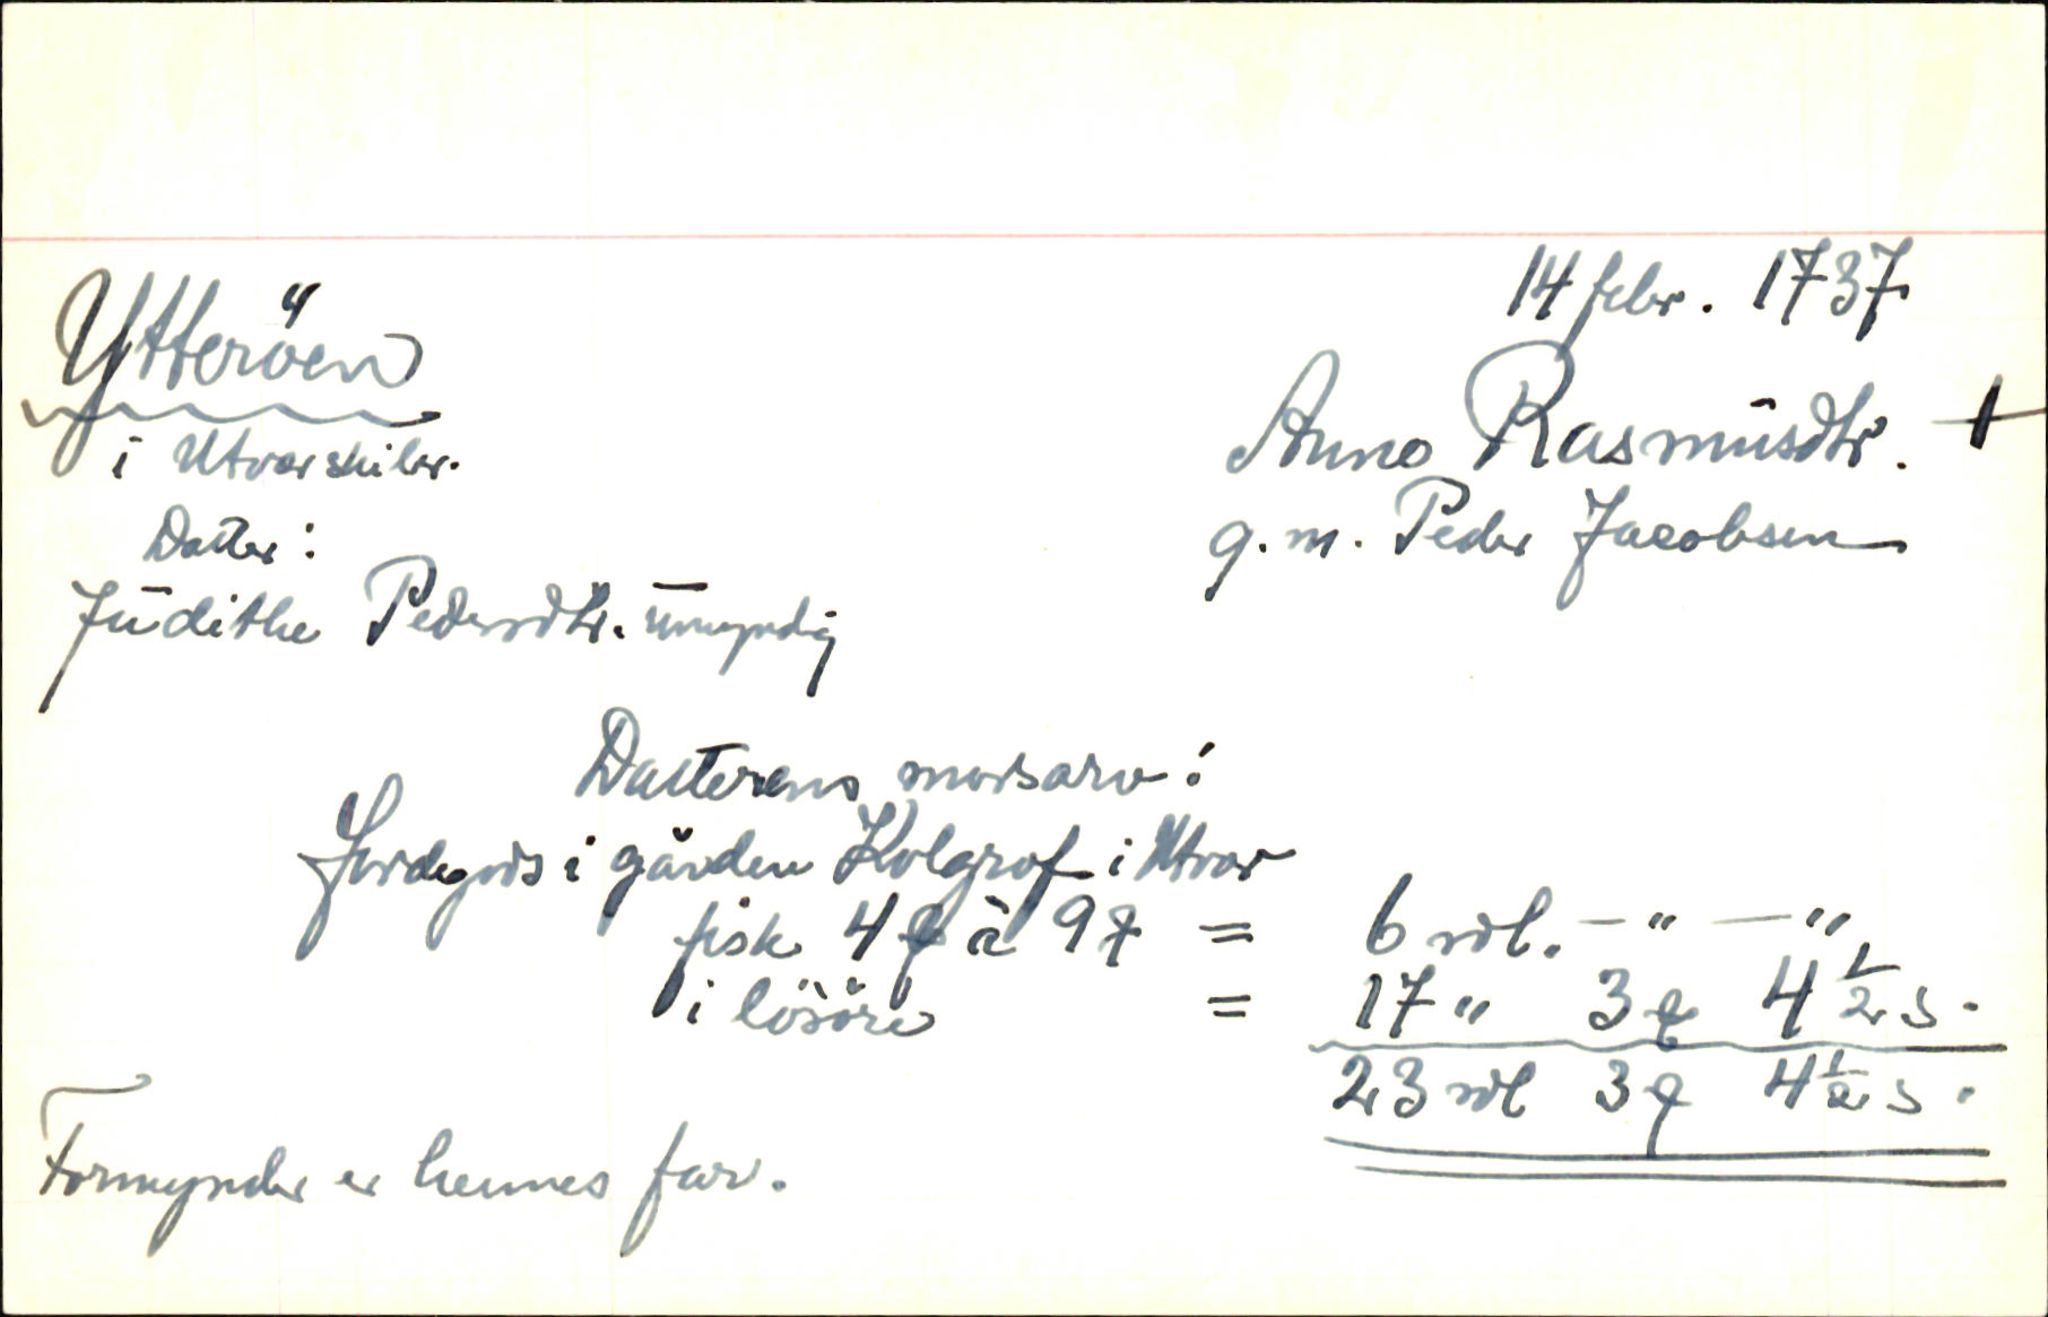 14 febr. 1737
Ytteröen
i Utvær skibr.
Anna Rasmusdtr. +
g. m. Peder Jacobsen
Datter:
Judithe Pedersdtr. umyndig
Datterens morsarv:
Jordegods i gården Kolgrof i Utvær
fisk à 9 = 6 rdl. - " - "
i lösöre = 17 " 3 4 1/2 s.
23 rdl 3 4 1/2 s.
Formynder er hennes far.